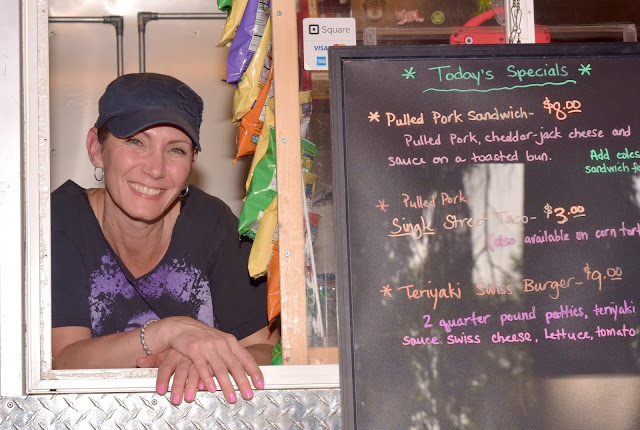 Square
VISA
* Today's Specials *
* Pulled Pork Sandwich- $8.00
Pulled Pork, cheddar-jack cheese and
sauce on a toasted bun.
Add coles
sandwich fo
* Pulled Pork
Single Street Taco- $3.00
(also available on corn tort
* Teriyaki Swiss Burger- $9.00
2 quarter pound patties, teriyaki
sauce, swiss cheese, lettuce, tomato